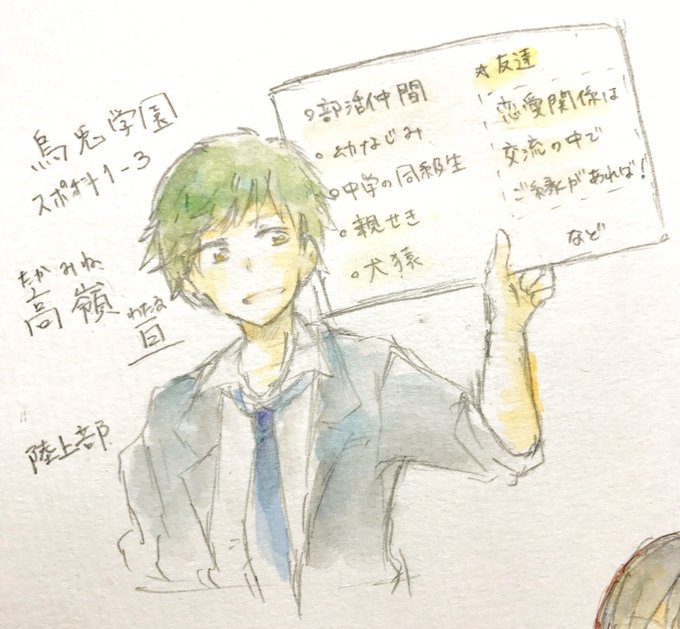 烏兎学園
スポ科1-3
たかみね
高嶺
わたる
亘
陸上部
○部活仲間
○幼なじみ
○中学の同級生
○親せき
○犬猿
☆友達
恋愛関係は
交流の中で
ご縁があれば!
など